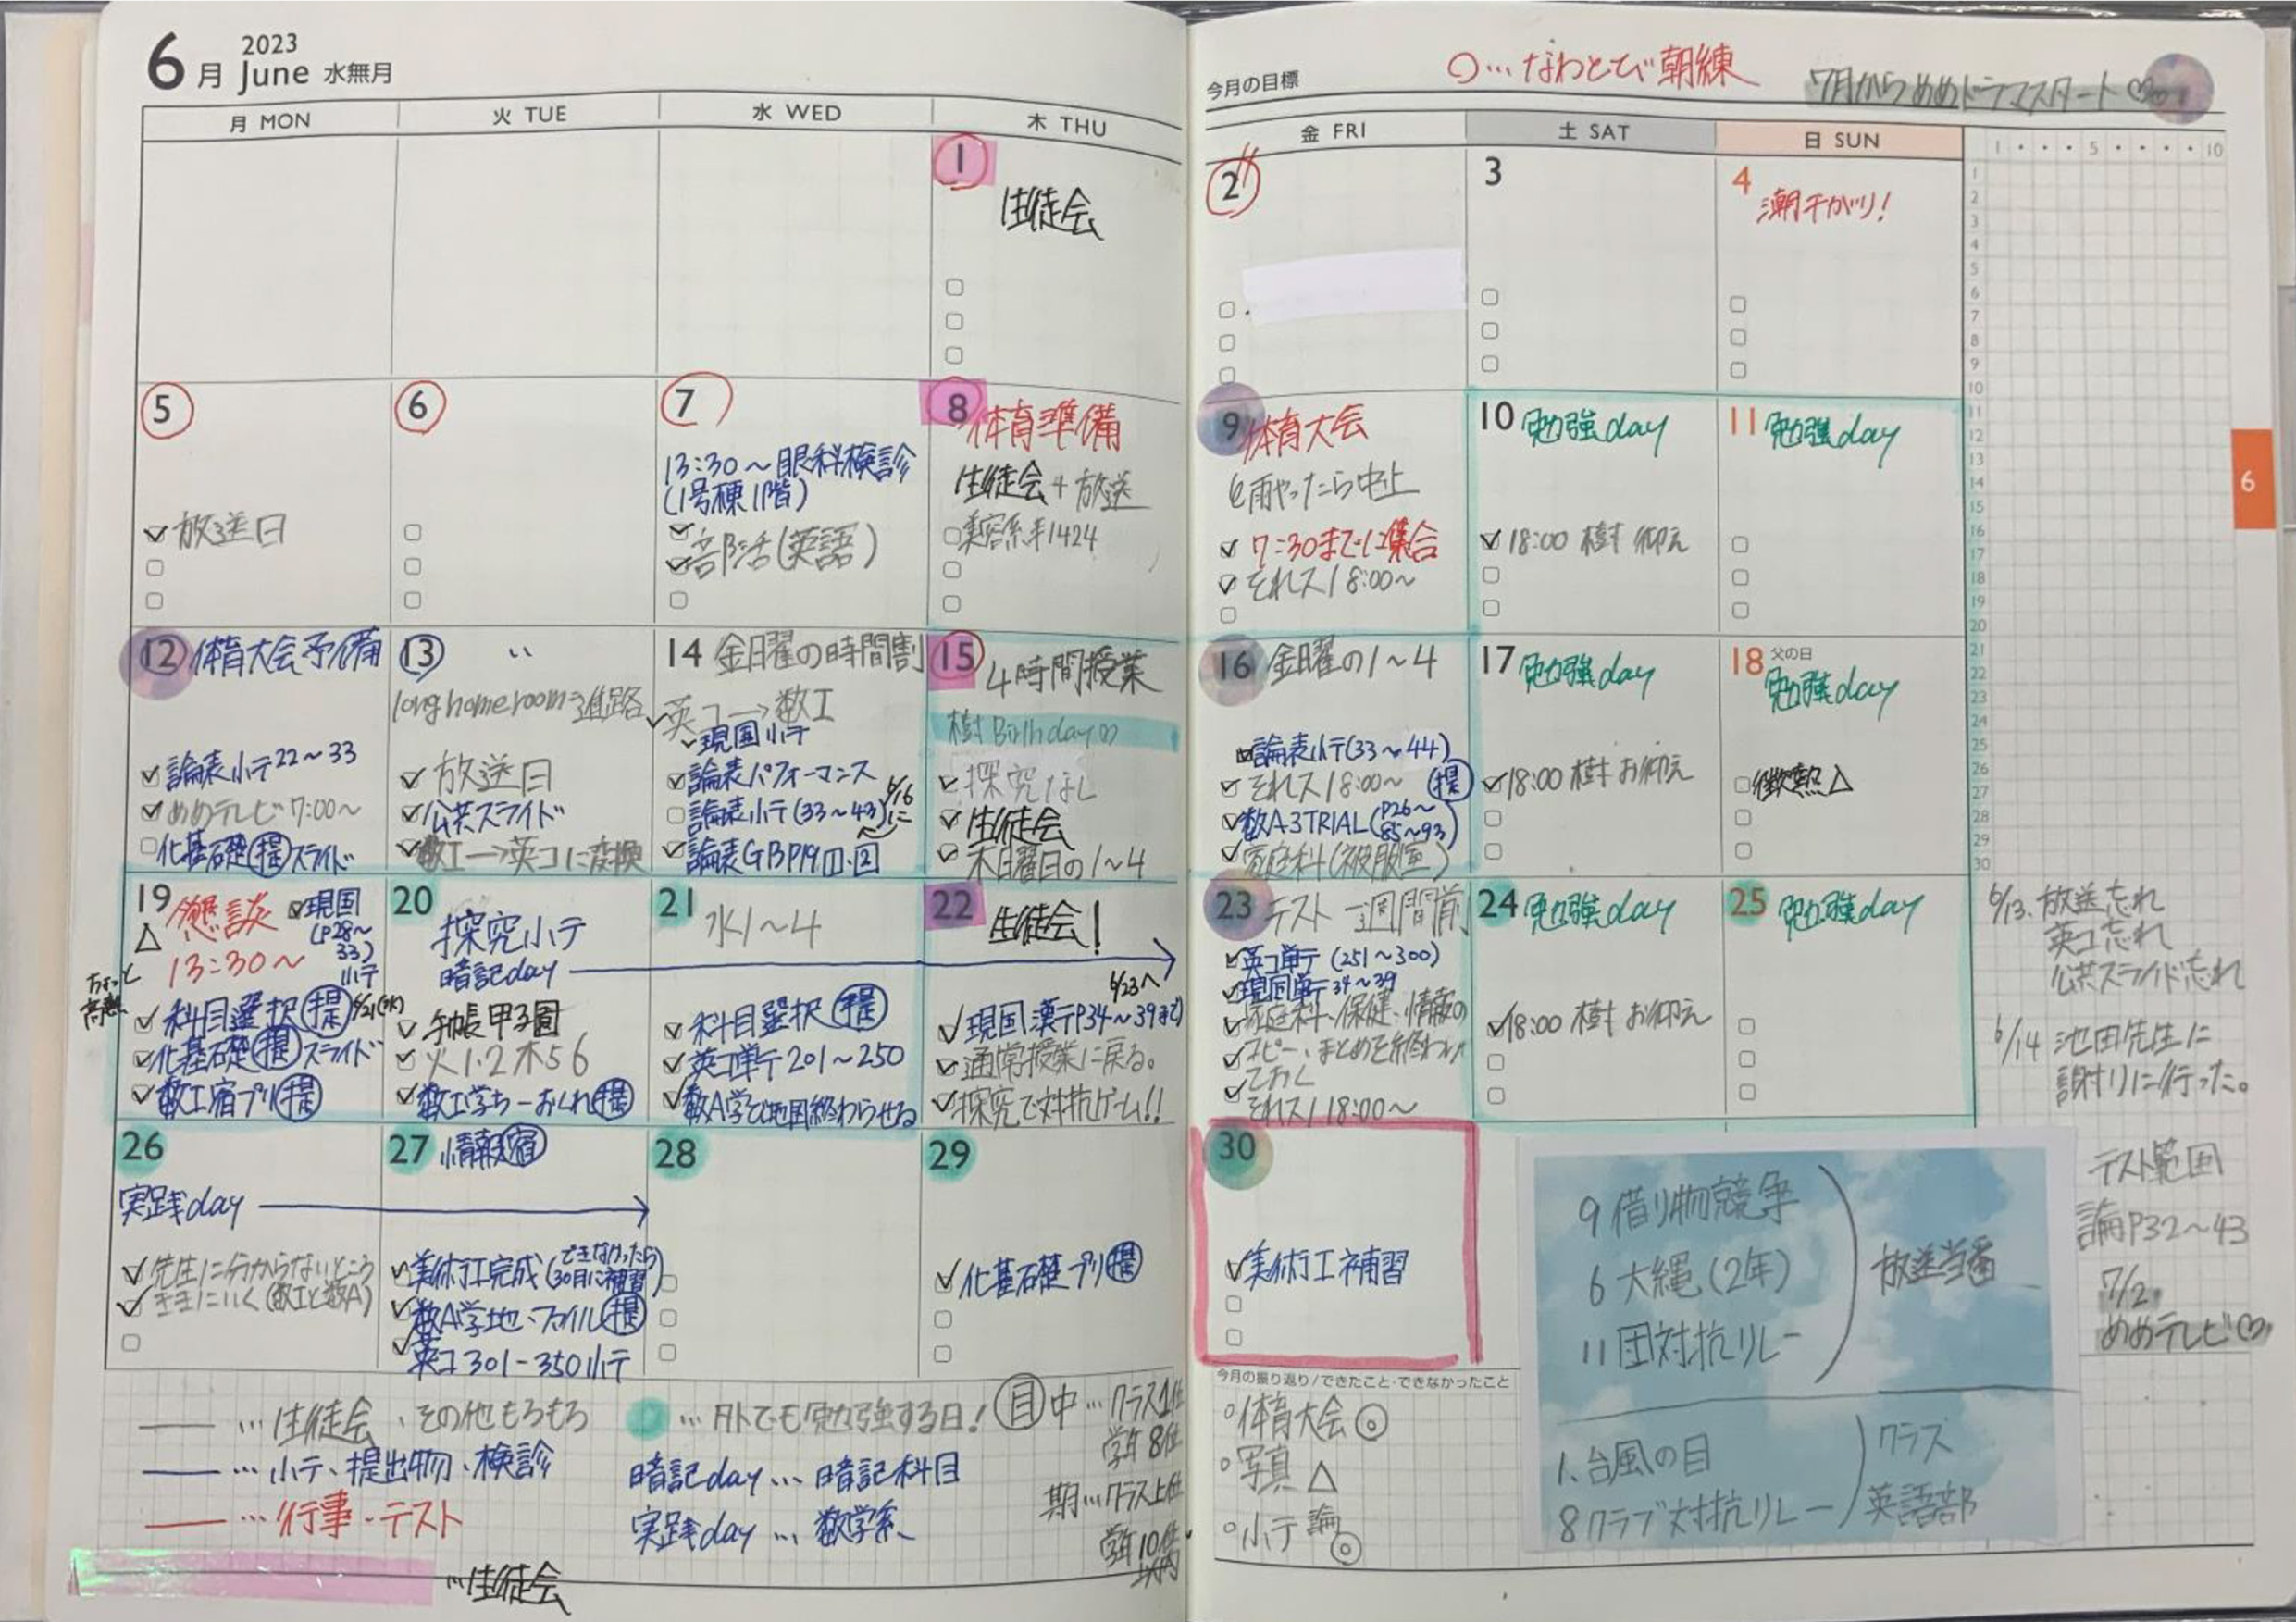 6月 2023 June 水無月
今月の目標
○…なわとび朝練
7月からめめドラマスタート♡
月 MON
火 TUE
水 WED
木 THU
金 FRI
土 SAT
日 SUN
1
生徒会
2
3
4
潮干がり!
5
放送日
6
7
13:30～眼科検診
(1号棟1階)
部活(英語)
8
体育準備
生徒会+放送
9
体育大会
雨やったら中止
7:30までに集合
それスノ8:00～
10 勉強day
18:00 樹
11 勉強day
12 体育大会予備
論表小テ22～33
めめテレビ7:00～
化基礎(提)スライド
13 〃
long homeroom⇒進路
放送日
公共スライド
数I→英コに変換
14 金曜の時間割
英コ→数I
現国小テ
論表パフォーマンス
論表小テ(33～43) 6/16に
論表GBP19 1・2
15
4時間授業
樹Birthday♡
探究なし
生徒会
木曜日の1～4
16 金曜の1～4
論表小テ(33～44)
それスノ8:00～ (提)
数A3TRIAL(P26～
85～93)
家庭科(被服室)
17 勉強day
18:00 樹 お迎え
18 父の日
勉強day
微熱△
19 懇談
△
13:30～
現国
(P28～
33)
小テ
ちょっと
高熱
科目選択(提) 6/21(水)
化基礎(提)スライド
数I宿プリ(提)
20
探究小テ
暗記day
手帳甲子園
火1.2木56
21
水1～4
科目選択(提)
英コ単テ201～250
22 生徒会!
6/23へ
現国漢テP34～39まで
通常授業に戻る。
探究で対抗ゲーム!!
23 テスト一週間前
英コ単テ(251～300)
現国単テ34～39
家庭科、保健、情報の
コピー、まとめを終わら
ておく
それスノ18:00～
24 勉強day
18:00 樹 お迎え
25 勉強day
26
実践day
先生に分からないところ
ききにいく(数Iと数A)
27 情報(宿)
美術I完成(できなかったら
30日に補習)
数A学地・ファイル(提)
英コ301-350小テ
28
29
化基礎プリ(提)
30
美術I補習
6
1 5 10
1
2
3
4
5
6
7
8
9
10
11
12
13
14
15
16
17
18
19
20
21
22
23
24
25
26
27
28
29
30
6/13. 放送忘れ
英コ忘れ
公共スライド忘れ
6/14 池田先生に
謝りに行った。
テスト範囲
論P32～43
7/2
めめテレビ♡
…生徒会、その他もろもろ
…小テ、提出物、検診
…行事・テスト
…生徒会
…外でも勉強する日!
暗記day…暗記科目
実践day…数学系
(目)中…クラス1位
学年8位
期…クラス上位
学年10位
以内
今月の振り返り/できたこと・できなかったこと
○体育大会◎
○写真△
○小テ 論◎
9 借り物競争
6 大縄(2年)
11 団対抗リレー
放送当番
1. 台風の目
8 クラブ対抗リレー
クラス
英語部